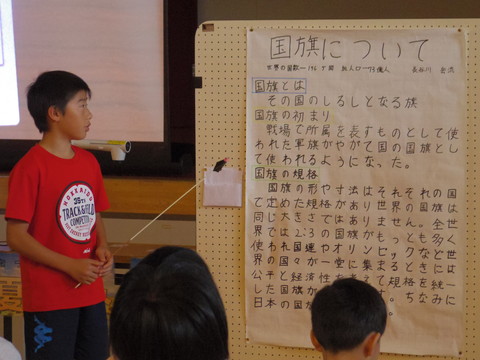 国旗について
世界の国数…196ヶ国 総人口…73億人 長谷川
国旗とは
その国のしるしとなる旗
国旗の初まり
戦場で所属を表すものとして使
われた軍旗がやがて国の国旗とし
て使われるようになった。
国旗の規格
国旗の形や寸法はそれぞれの国
で定めた規格があり世界の国旗は
同じ大きさではありません。全世
界では2:3の国旗がもっとも多く
使われ国連やオリンピックなど世
界の国々が一堂に集まるときには
公平と経済性を考えて規格を統一
した国旗が す。ちなみに
日本の国旗
HOKKAIDO
35TH
TRACK&FIELD
COMPETI
Kappa